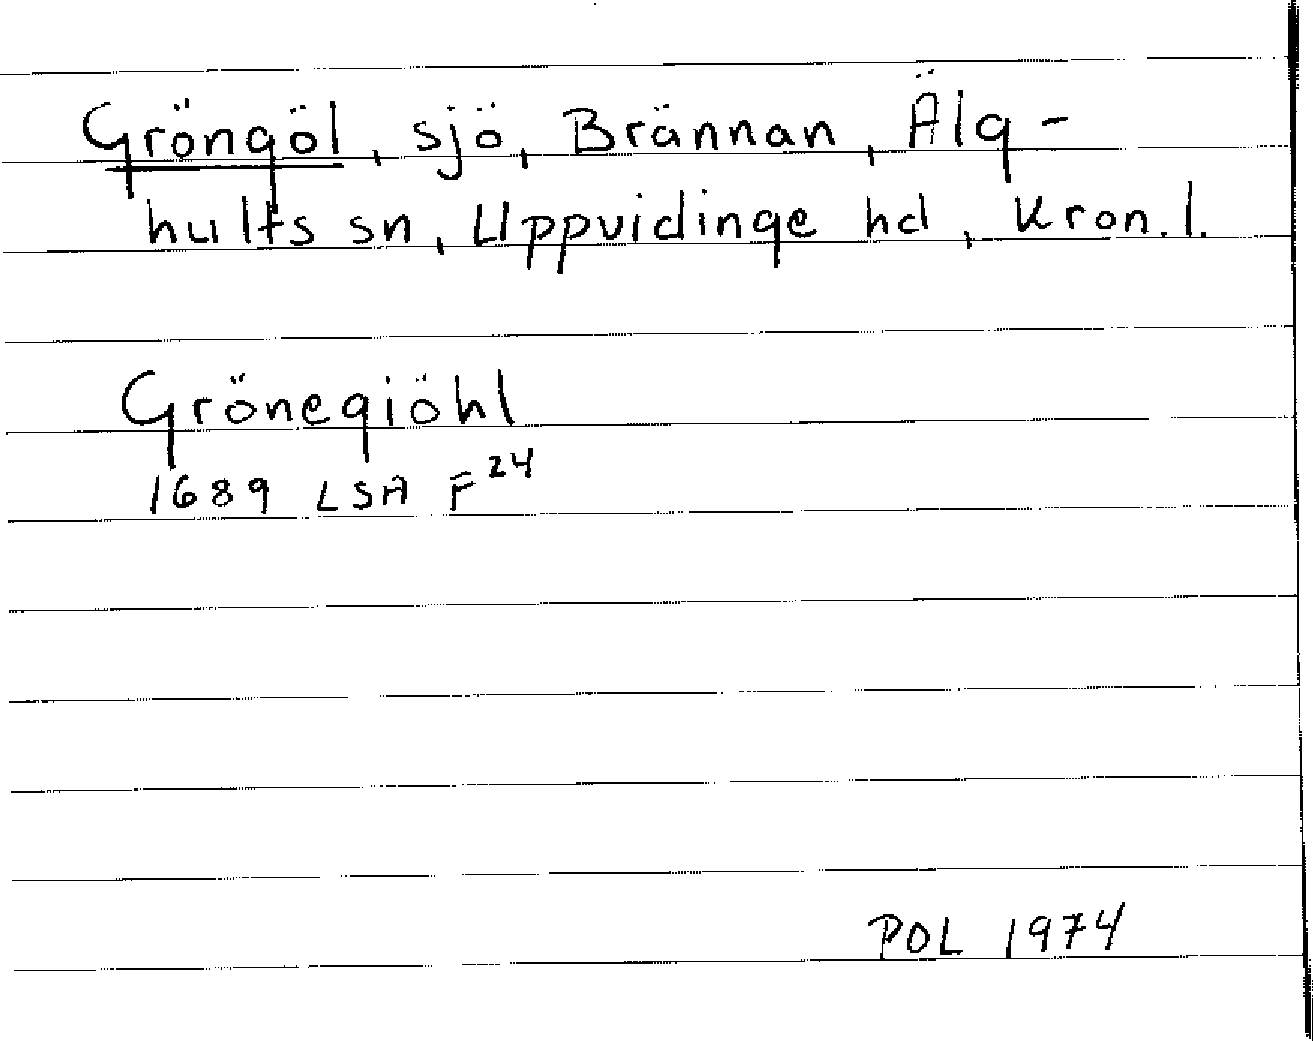 Gröngöl, sjö, Brännan, Älg-
hults sn, Uppvidinge hd, Kron. l.
Grönegiöhl
1689 LSA F24
POL 1974